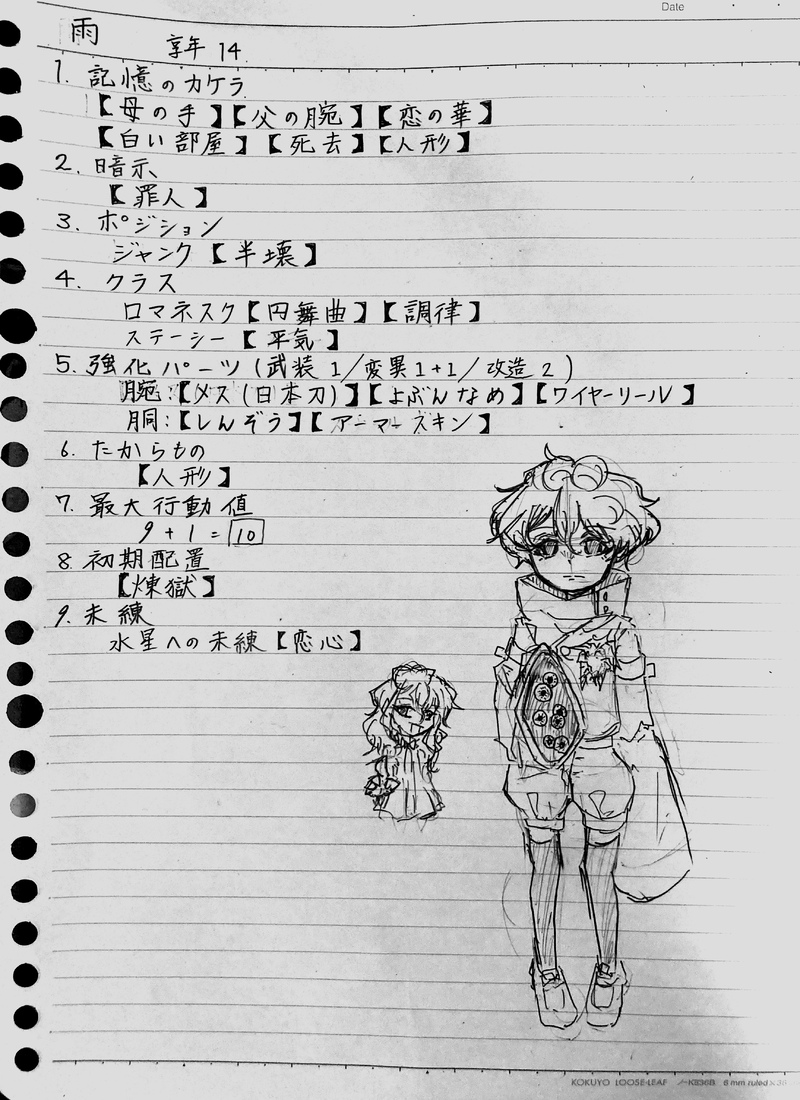 Date
雨 享年 14
1. 記憶のカケラ
【母の手】【父の腕】【恋の華】
【白い部屋】【死去】【人形】
2. 暗示
【罪人】
3. ポジション
ジャンク【半壊】
4. クラス
ロマネスク【円舞曲】【調律】
ステーシー【平気】
5. 強化パーツ(武装1/変異1+1/改造2)
腕:【メス(日本刀)】【よぶんなめ】【ワイヤーリール】
胴:【しんぞう】【アーマースキン】
6. たからもの
【人形】
7. 最大行動値
9+1=10
8. 初期配置
【煉獄】
9. 未練
水星への未練【恋心】
KOKUYO LOOSE-LEAF ノ-K836B 6 mm ruled×36